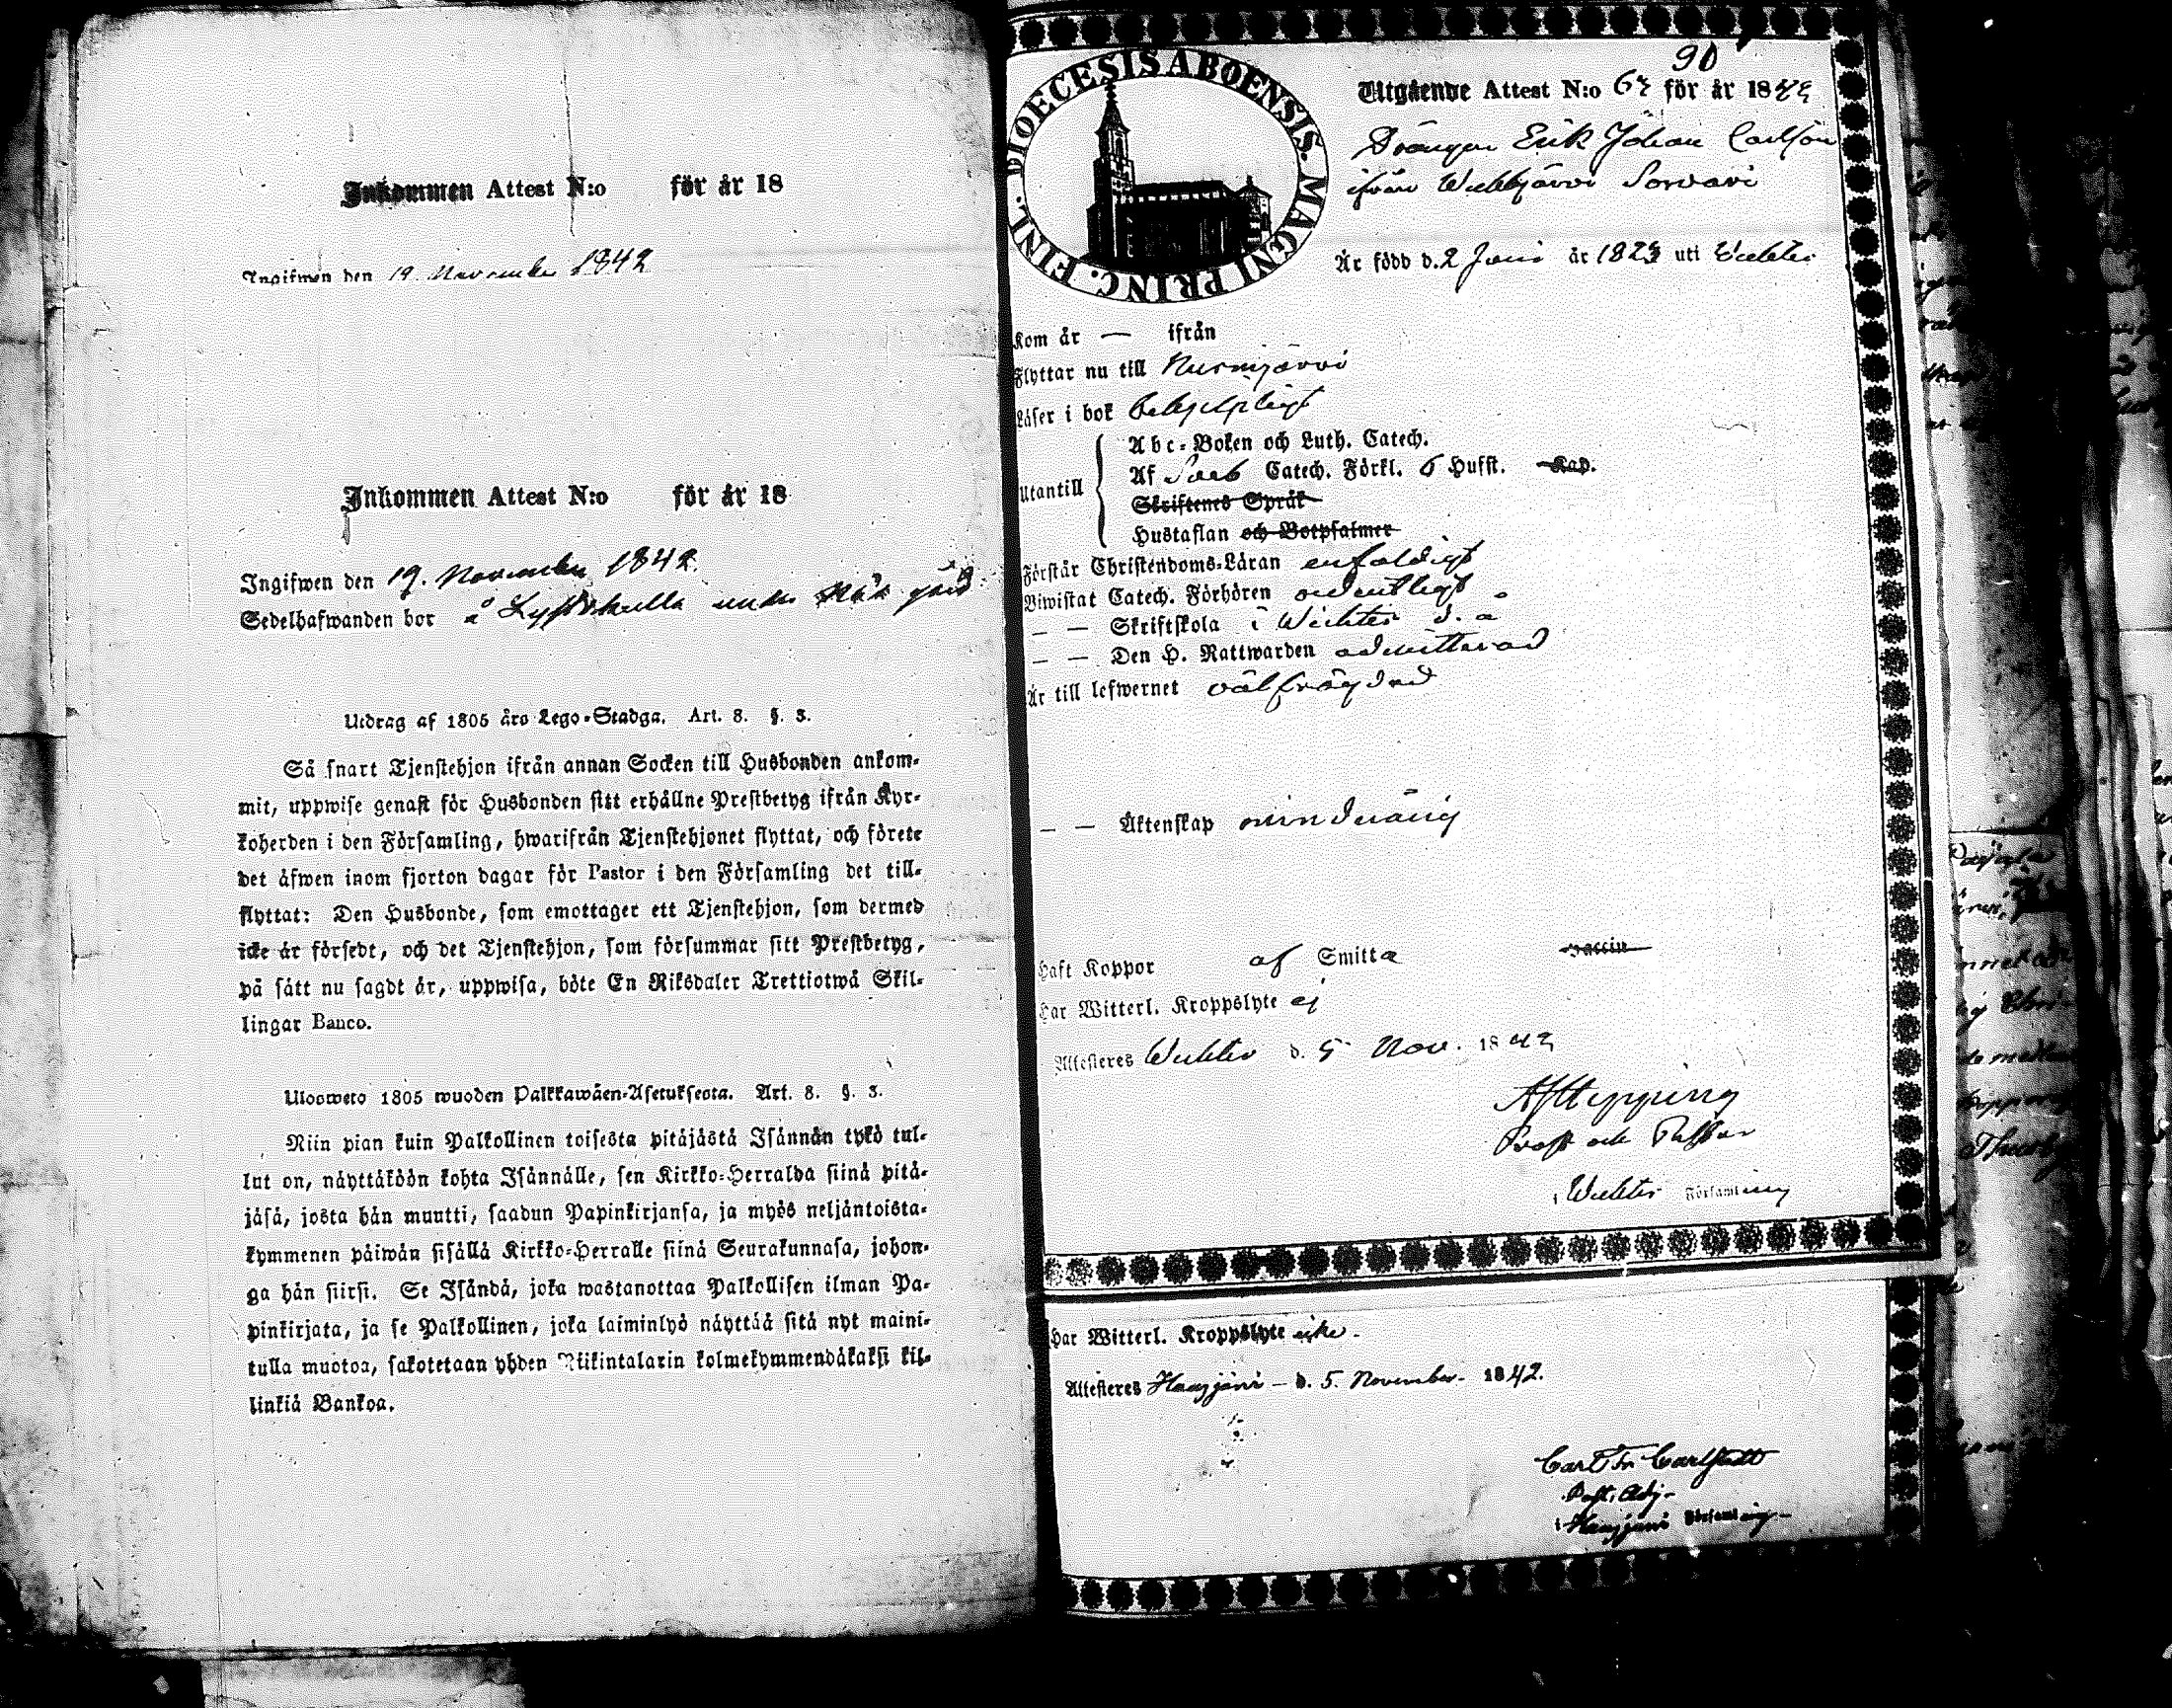 Inkommen Attest N:o för år 18
Ingifwen den 19. November 1842
Inkommen Attest N:o för år 18
Ingifwen den 19. November 1842.
Sedelhafwanden bor å under gård
Utdrag af 1805 års Lego-Stadga. Art. 8. §. 3.
Så snart Tjenstehjon ifrån annan Socken till Husbonden ankom-
mit, uppwise genast för Husbonden sitt erhållne Prestbetyg ifrån Kyr-
koherden i den Församling, hwarifrån Tjenstehjonet flyttat, och förete
det äfwen inom fjorton dagar för Pastor i den Församling det till-
flyttat: Den Husbonde, som emottager ett Tjenstehjon, som dermed
icke är försedt, och det Tjenstehjon, som försummar sitt Prestbetyg,
på sätt nu sagdt är, uppwisa, böte En Riksdaler Trettiotwå Skil-
lingar Banco.
Ulosweto 1805 wuoden Palkkawäen-Asetuksesta. Art. 8. §. 3.
Niin pian kuin Palkollinen toisesta pitäjästä Isännän tykö tul-
lut on, näyttäköön kohta Isännälle, sen Kirkko-Herralda siinä pitä-
jäsä, josta hän muutti, saadun Papinkirjansa, ja myös neljäntoista-
kymmenen päiwän sisällä Kirkko-Herralle siinä Seurakunnasa, johon-
ga hän siirsi. Se Isändä, joka wastanottaa Palkollisen ilman Pa-
pinkirjata, ja se Palkollinen, joka laiminlyö näyttää sitä nyt maini-
tulla muotoa, sakotetaan yhden Riikintalarin kolmekymmendäkaksi kil-
linkiä Bankoa.
90
DIOECESIS ABOENSIS. MAGNI PRINC. FINL.
Utgående Attest N:o 67 för år 1842
Drängen Erik Johan Carlsson
ifrån Wichtjärvi Sorvari
Är född d. 2 Juni år 1823 uti Wichtis
Kom år — ifrån
Flyttar nu till Nurmijärvi
Läser i bok behjelpligt
Utantill
Abc-Boken och Luth. Catech.
Af Sveb Catech. Förkl. 6 Hufst. Kap.
Skriftenes Språk
Hustaflan och Botpsalmer
Förstår Christendoms-Läran enfaldigt
Biwistat Catech. Förhören ordentligt
— — Skriftskola i Wichtis d. å
— — Den H. Nattwarden admitterad
Är till lefwernet välfrägdad
— — Äktenskap minderårig
Haft Koppor af Smitta vaccin
Har Witterl. Kroppslyte ej
Attesteres Wichtis d. 5 Nov. 1842
Prost och Pastor
i Wichtis Församling
Har Witterl. Kroppslyte icke -
Attesteres Hausjärvi - d. 5. November - 1842.
Carl Fr Carlstedt
Past. Adj.
i Hausjärvi Församling -